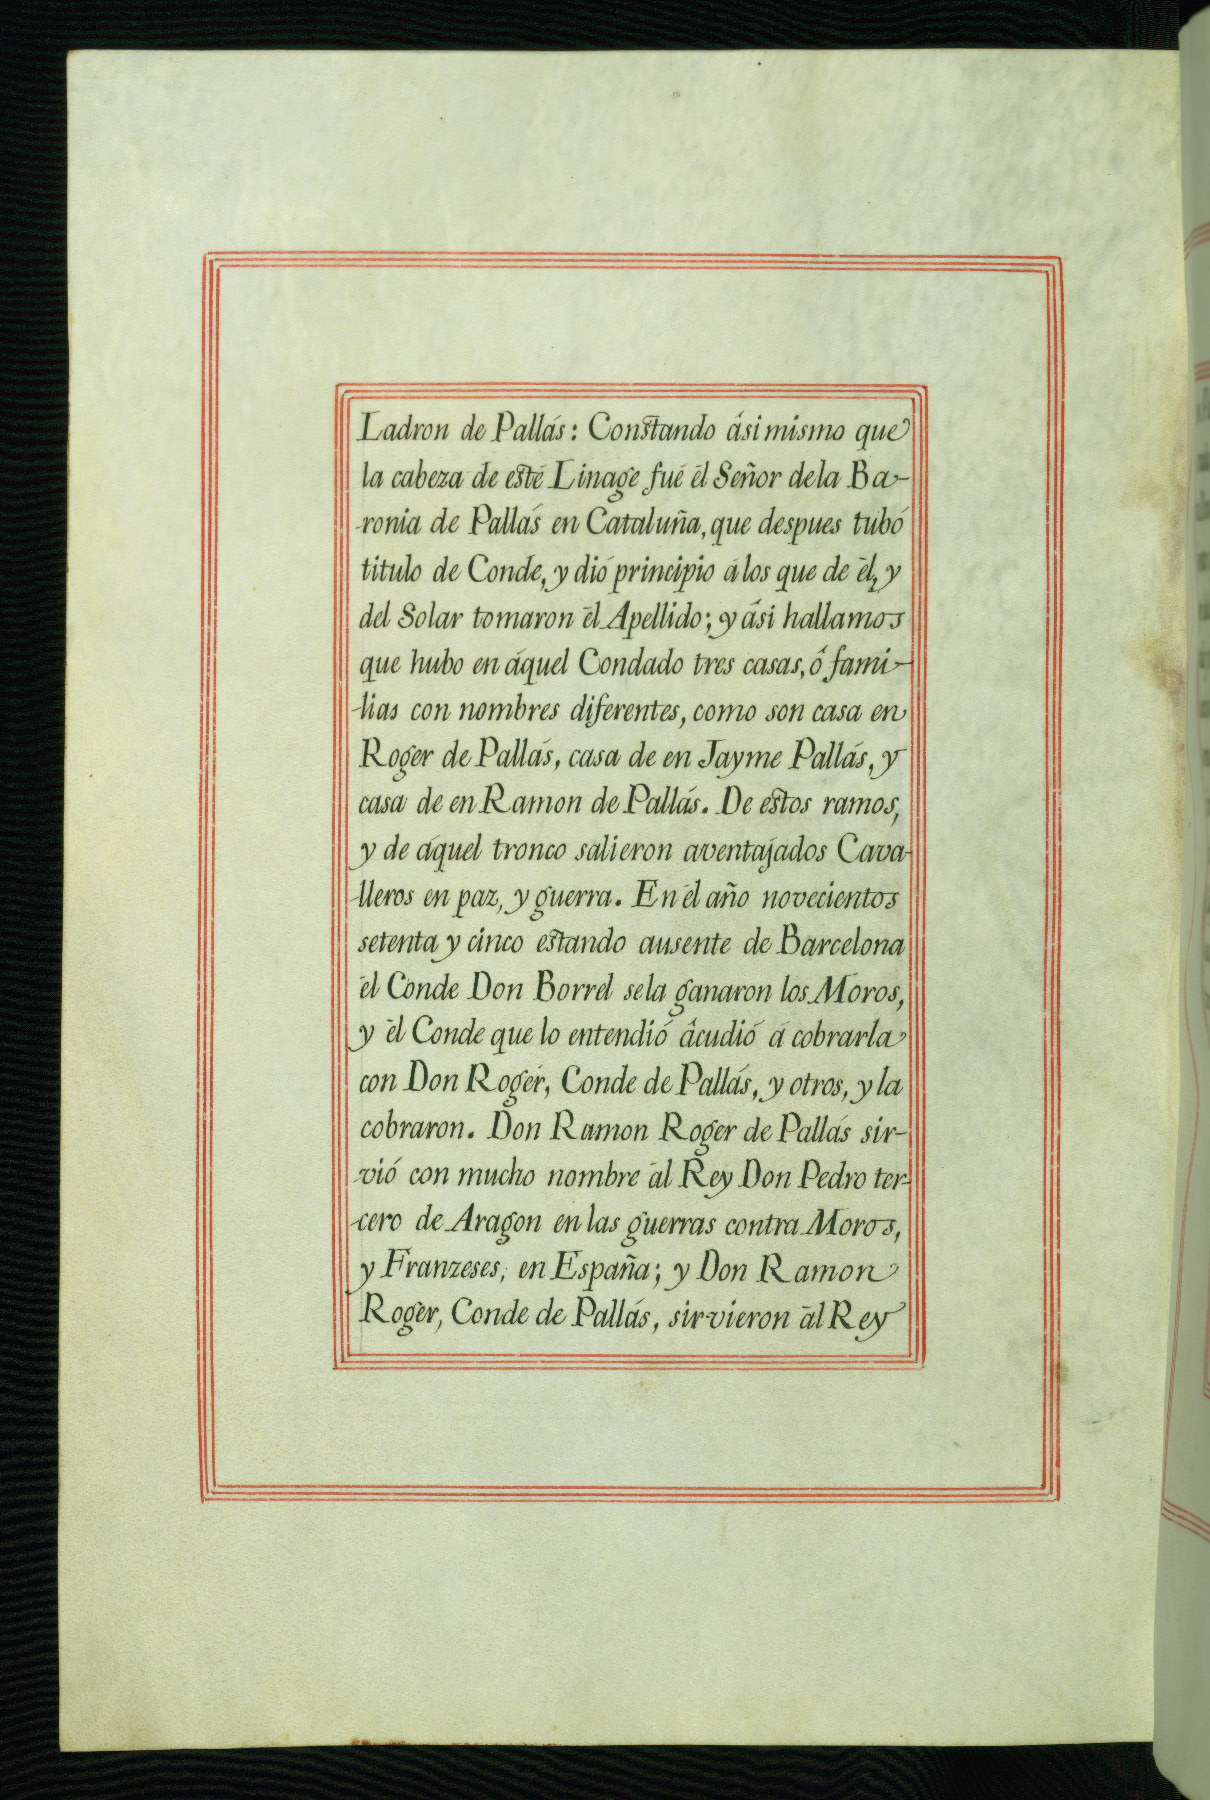 Ladron de Pallás: Constando âsi mismo que
la cabeza de esté Linage fué él Señor dela Ba-
-ronia de Pallás en Cataluña, que despues tubó
titulo de Conde, y dió principio á los que de él, y
del Solar tomaron él Apellido; y âsi hallamos
que hubo en áquel Condado tres casas, ô fami-
-lias con nombres diferentes, como son casa en
Roger de Pallás, casa de en Jayme Pallás, y
casa de en Ramon de Pallás. De estos ramos,
y de áquel tronco salieron aventajados Cava-
-lleros en paz, y guerra. En él año novecientos
setenta y cinco estando ausente de Barcelona
él Conde Don Borrel sela ganaron los Moros,
y él Conde que lo entendió âcudió á cobrarla
con Don Rogér, Conde de Pallás, y otros, y la
cobraron. Don Ramon Roger de Pallás sir-
-vió con mucho nombre ál Rey Don Pedro ter-
-cero de Aragon en las guerras contra Moros,
y Franzeses, en España; y Don Ramon
Roger, Conde de Pallás, sirvieron ál Rey